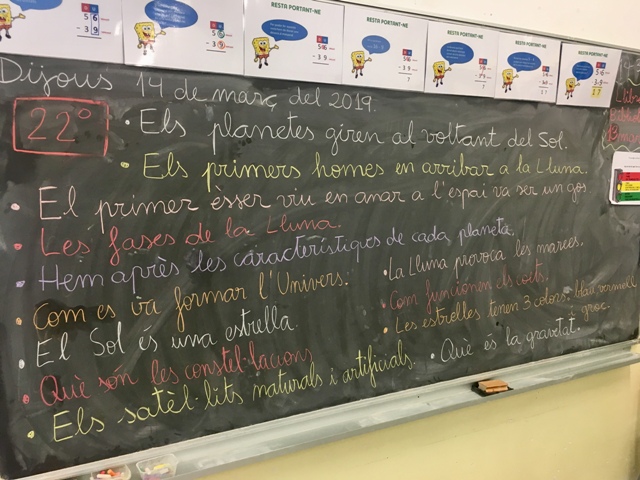 RESTA PORTANT-NE
RESTA PORTANT-NE
RESTA PORTANT-NE
RESTA PORTANT-NE
RESTA PORTANT-NE
56
- 39
56
- 39
56
- 39
56
- 39
7
Dijous 14 de març del 2019.
22°
· Els planetes giren al voltant del Sol.
· Els primers homes en arribar a la Lluna.
· El primer ésser viu en anar a l'espai va ser un gos
· Les fases de la Lluna.
· Hem après les característiques de cada planeta.
· Com es va formar l'Univers.
· El Sol és una estrella.
· Què són les constel·lacions
· Els satèl·lits naturals i artificials.
· La Lluna provoca les marees.
· Com funcionen els coets.
· Les estrelles tenen 3 colors: blau vermell
groc.
· Què és la gravetat.